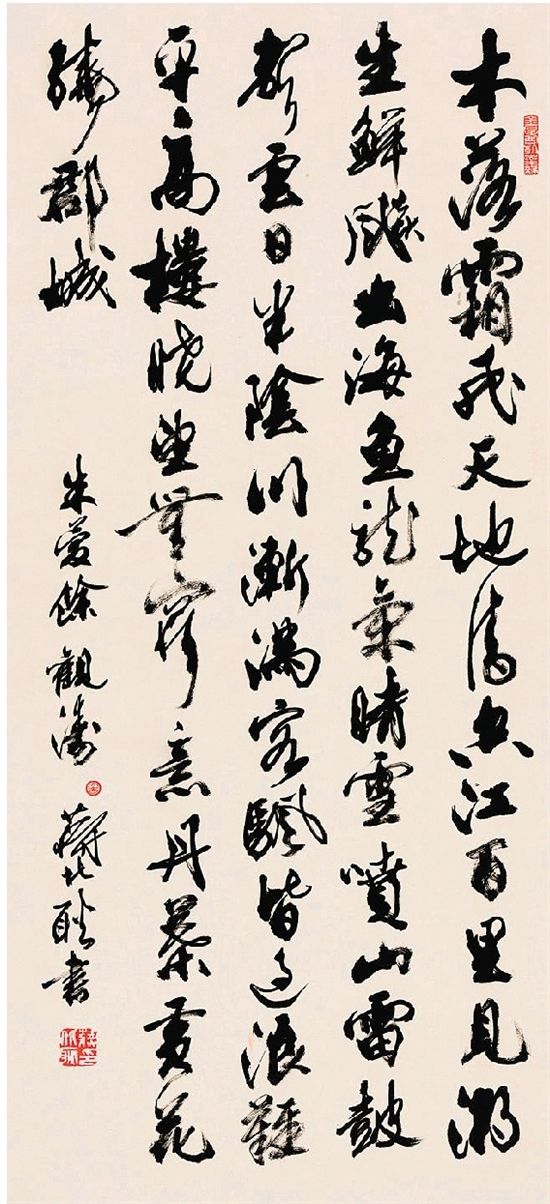 木落霜飛天地清空江百里見潮
生鮮飈出海魚龍氣晴雪噴山雷鼓
聲雲日半陰川漸滿客颿皆過浪難
平高樓曉望無窮意丹葉黃花
繞郡城
朱慶餘觀濤
書